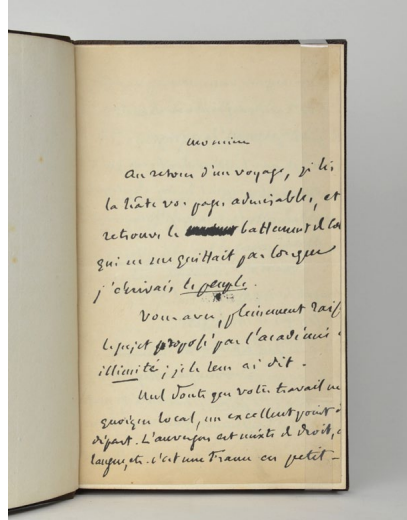 Monsieur
Au retour d'un voyage, je lis
la hâte vos pages admirables, et
retrouve le battement de
qui ne me quittait pas lorsque
j'écrivais le peuple.
Vous avez, pleinement
le sujet proposé par l'académie
illimité ; je le leur ai dit.
Nul doute que votre travail ne
quoique local, un excellent point
départ. L'auvergne est mixte de droit,
langue, etc. c'est une France en petit -